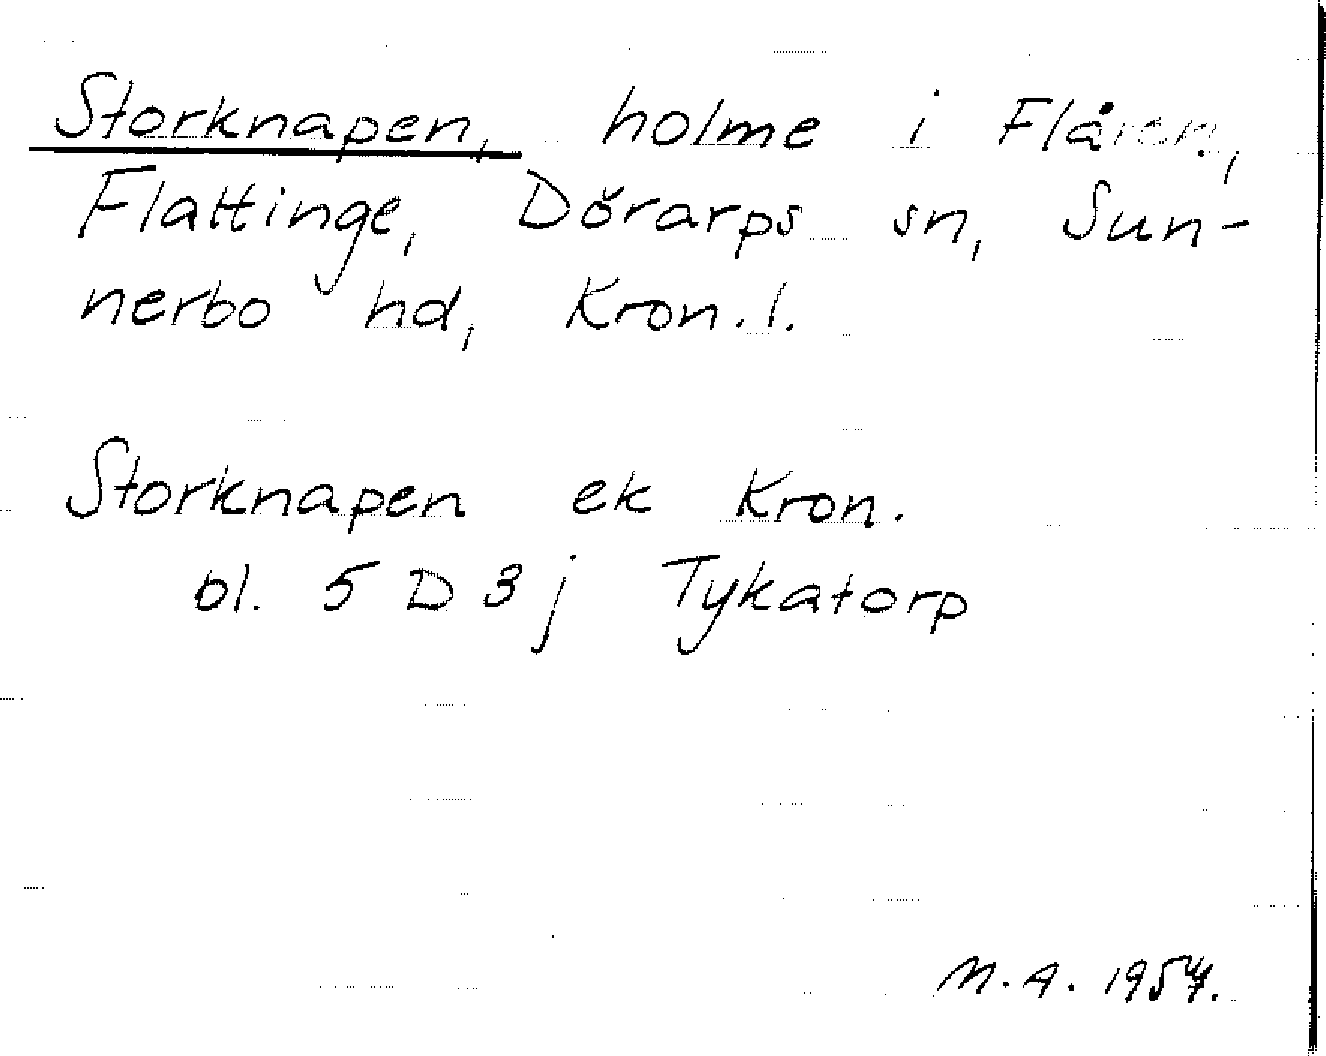 Storknapen, holme i Flåren,
Flattinge, Dörarps sn, Sun-
nerbo hd, Kron.l.
Storknapen ek Kron.
bl. 5 D 3 j Tykatorp
M.A. 1957.